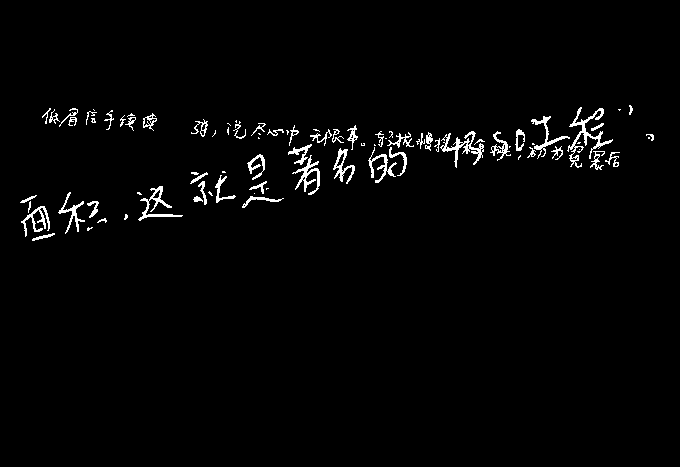 低眉信手续续 弹，说尽心中无限事。轻拢慢捻 初为霓裳后
面积，这就是著名的 SD工程”。